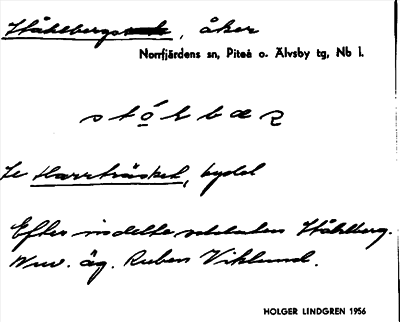 Ståhlbergs, åker
Norrfjärdens sn, Piteå o. Älvsby tg, Nb l.
stólbæʀ
Se Harrträsket, bydel
Efter indelte soldaten Ståhlberg.
Nuv. äg. Ruben Viklund.
HOLGER LINDGREN 1956